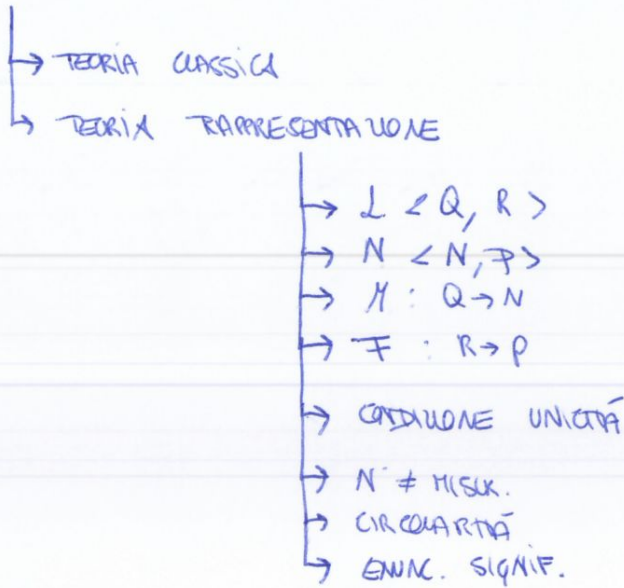 TEORIA CLASSICA
TEORIA RAPPRESENTAZIONE
L < Q, R >
N < N, P >
M : Q → N
F : R → P
CONDIZIONE UNICITÀ
N ≠ MISUR.
CIRCOLARITÀ
ENUNC. SIGNIF.